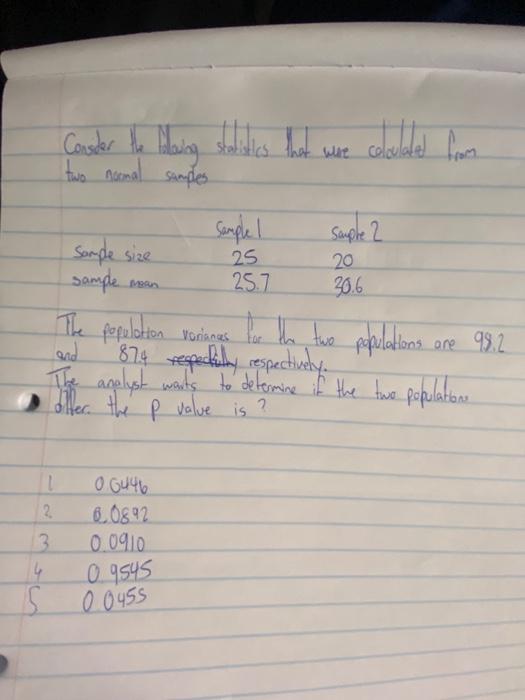 Consider the following statistics that were calculated from
two normal samples
Sample 1 Sample 2
Sample size 25 20
sample mean 25.7 30.6
The population variances for the two populations are 98.2
and 87.4 respectfully respectively.
The analyst wants to determine if the two populations
differ. the p value is ?
1 0.0446
2 0.0892
3 0.0910
4 0.9545
5 0.0455